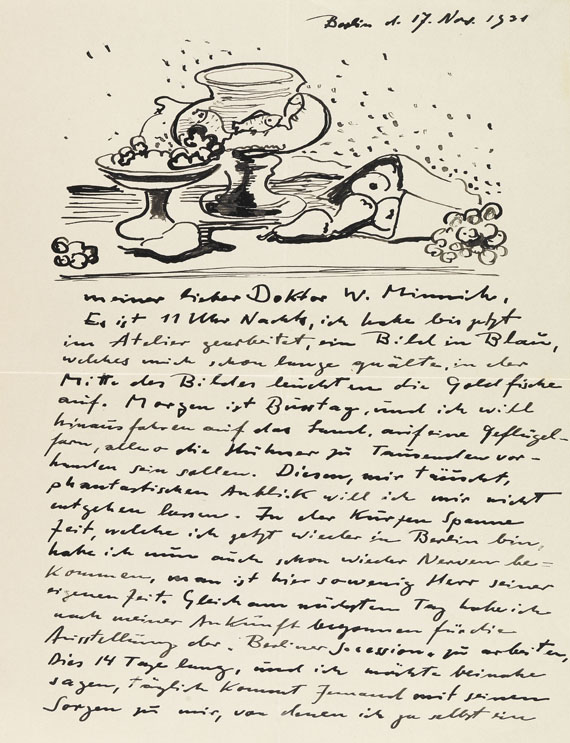 Berlin d. 17. Nov. 1931
meiner lieber Doktor W. Minnich,
Es ist 11 Uhr Nachts, ich habe bis jetzt
im Atelier gearbeitet, ein Bild in Blau,
welches mich schon lange quälte, in der
Mitte des Bildes leuchten die Goldfische
auf. Morgen ist Busstag, und ich will
hinausfahren auf das Land, auf eine Geflügel-
farm, allwo die Hühner zu Tausenden vor-
handen sein sollen. Diesen, mir täucht,
phantastischen Anblick will ich mir nicht
entgehen lassen. In der kurzen Spanne
Zeit, welche ich jetzt wieder in Berlin bin,
habe ich nun auch schon wieder Nerven be=
kommen, man ist hier sowenig Herr seiner
eigenen Zeit. Gleich am nächsten Tag habe ich
nach meiner Ankunft begonnen für die
Ausstellung der "Berliner Secession" zu arbeiten,
Dies 14 Tage lang, und ich möchte beinahe
sagen, täglich kommt Jemand mit seinen
Sorgen zu mir, von denen ich ja selbst ein